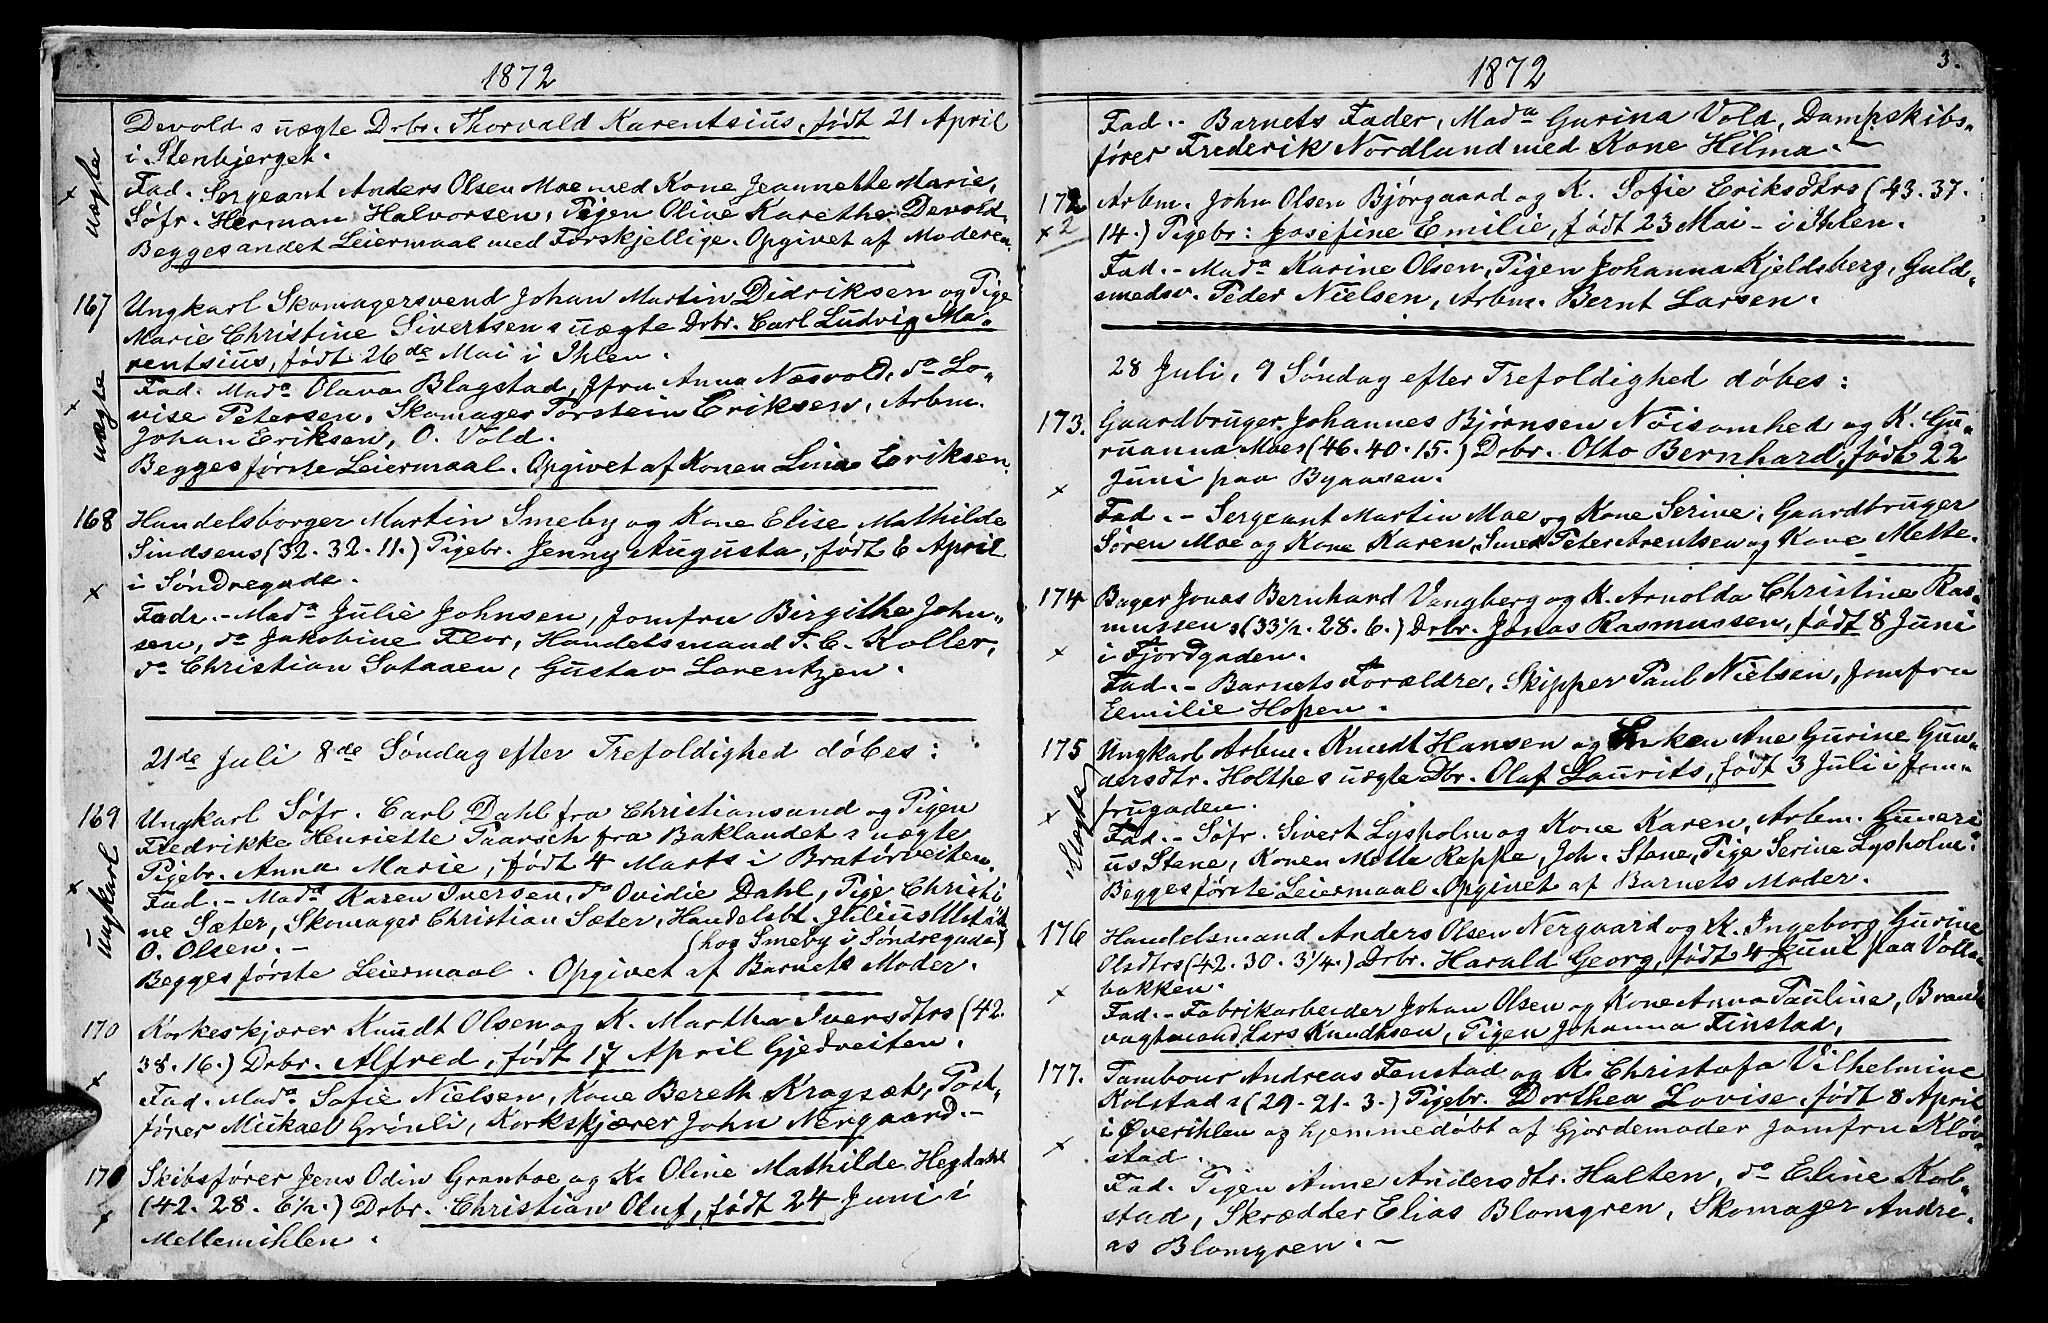 1872
Devolds uægte Drbr. Thorvald Karentsius, født 21 April
i Stenbjerget.
uægte
×
Fad. Sergeant Anders Olsen Moe med Kone Jeannette Marie,
Søfr. Herman Halvorsen, Pigen Oline Karethe Devold.
Begges andet Leiermaal med Forskjellige. Opgivet af Moderen.
167 Ungkarl Skomagersvend Johan Martin Didriksen og Pige
Marie Christine Sivertsens uægte Drbr. Carl Ludvig Ma-
rentsius, født 26de Mai i Ihlen.
uægte
×
Fad. Mada Olava Blagstad, Jfru Anna Næsvold, do Lo-
vise Petersen, Skomager Torstein Eriksen, Arbm.
Johan Eriksen, O. Vold.
Begges første Leiermaal. Opgivet af Konen Lina Eriksen.
168 Handelsborger Martin Smeby og Kone Elise Mathilde
Sindsens (32. 32. 11.) Pigebr. Jenny Augusta, født 6 April
× i Søndregade.
Fadr. - Mada Julie Johnsen, Jomfru Birgithe John-
sen, do Jakobine Flor, Handelsmand T. C. Koller,
do Christian Sotaaen, Gustav Lorentzen.
21de Juli 8de Søndag efter Trefoldighed døbes:
169 Ungkarl Søfr. Carl Dahl fra Christiansund og Pigen
Fredrikke Henriette Paarsch fra Baklandet s uægte
Pigebr. Anna Marie, født 4 Marts i Bratørveiten.
ungkarl
×
Fad. - Mada Karen Iversen, do Ovidie Dahl, Pige Christi-
ne Sæter, Skomager Christian Sæter, Handelsbt. Julius Ulstad
O. Olsen. - (hos Smeby i Søndregade)
Begges første Leiermaal. Opgivet af Barnets Moder.
170 Korkeskjærer Knudt Olsen og K. Martha Iversdtrs (42.
38. 16.) Drbr. Alfred, født 17 April Gjedveiten.
× Fad. Mada Sofie Nielsen, Kone Bereth Kragsæt, Post-
fører Mickael Grønli, Korkskjærer John Nergaard. -
171 Skibsfører Jens Odin Grønboe og K. Oline Mathilde Hegdahl
(42. 28. 6½.) Drbr. Christian Oluf, født 24 Juni i
× Mellemihlen.
1872
3.
Fad. - Barnets Fader, Mada Gurina Vold, Dampskibs-
fører Frederik Nordlund med Kone Hilma. -
172 Arbm. John Olsen Bjørgaard og K. Sofie Eriksdtrs (43. 37.
×2 14.) Pigebr: Josefine Emilie, født 23 Mai - i Ihlen.
Fad. - Mada Karine Olsen, Pigen Johanna Kjeldsberg, Guld-
smedsv. Peder Nielsen, Arbm. Bernt Larsen.
28 Juli, 9 Søndag efter Trefoldighed døbes:
173. Gaardbruger Johannes Bjørnsen Nøisomhed og K. Gu-
ruanna Moes (46. 40. 15.) Drbr. Otto Bernhard, født 22
× Juni paa Byaasen.
Fad. - Sergeant Martin Moe og Kone Serine, Gaardbruger
Søren Moe og Kone Karen, Smed Peter Arentsen og Kone Mette.
174 Bager Jonas Bernhard Vangberg og K. Arnolda Christine Ras-
mussens (33½. 28. 6.) Drbr. Jonas Rasmussen, født 8 Juni
× i Fjordgaden.
Fad. - Barnets Forældre, Skipper Paul Nielsen, Jomfru
Emilie Hopen.
175 Ungkarl Arbm. Knudt Hansen og Enken Ane Gurine Gun-
dersdtr. Holthes uægte Dbr. Olaf Laurits, født 3 Juli i Jom-
frugaden.
Uægte
×
Fad. - Søfr. Sivert Lysholm og Kone Karen, Arbm. Guneri-
us Stene, Konen Metta Rappe, Joh. Stene, Pige Serine Lysholm.
Begges første Leiermaal. Opgivet af Barnets Moder.
176 Handelsmand Anders Olsen Nergaard og K. Ingeborg Gurine
Olsdtrs (42. 30. 3¼.) Drbr. Harald Georg, født 4 Juni paa Volla-
× bakken.
Fad. - Fabrikarbeider Johan Olsen og Kone Anna Pauline, Brand-
vagtmand Lars Knudtsen, Pigen Johanna Finstad,
177. Tambour Andreas Fenstad og K. Christofa Vilhelmine
Kolstads (29. 21. 3.) Pigebr. Dorthea Lovise, født 8 April
× i Øverihlen og hjemmedøbt af Gjordemoder Jomfru Kløv-
stad.
Fad. Pigen Anne Andersdtr. Halten, do Eline Kol-
stad, Skrædder Elias Blomgren, Skomager Andre-
as Blomgren. -